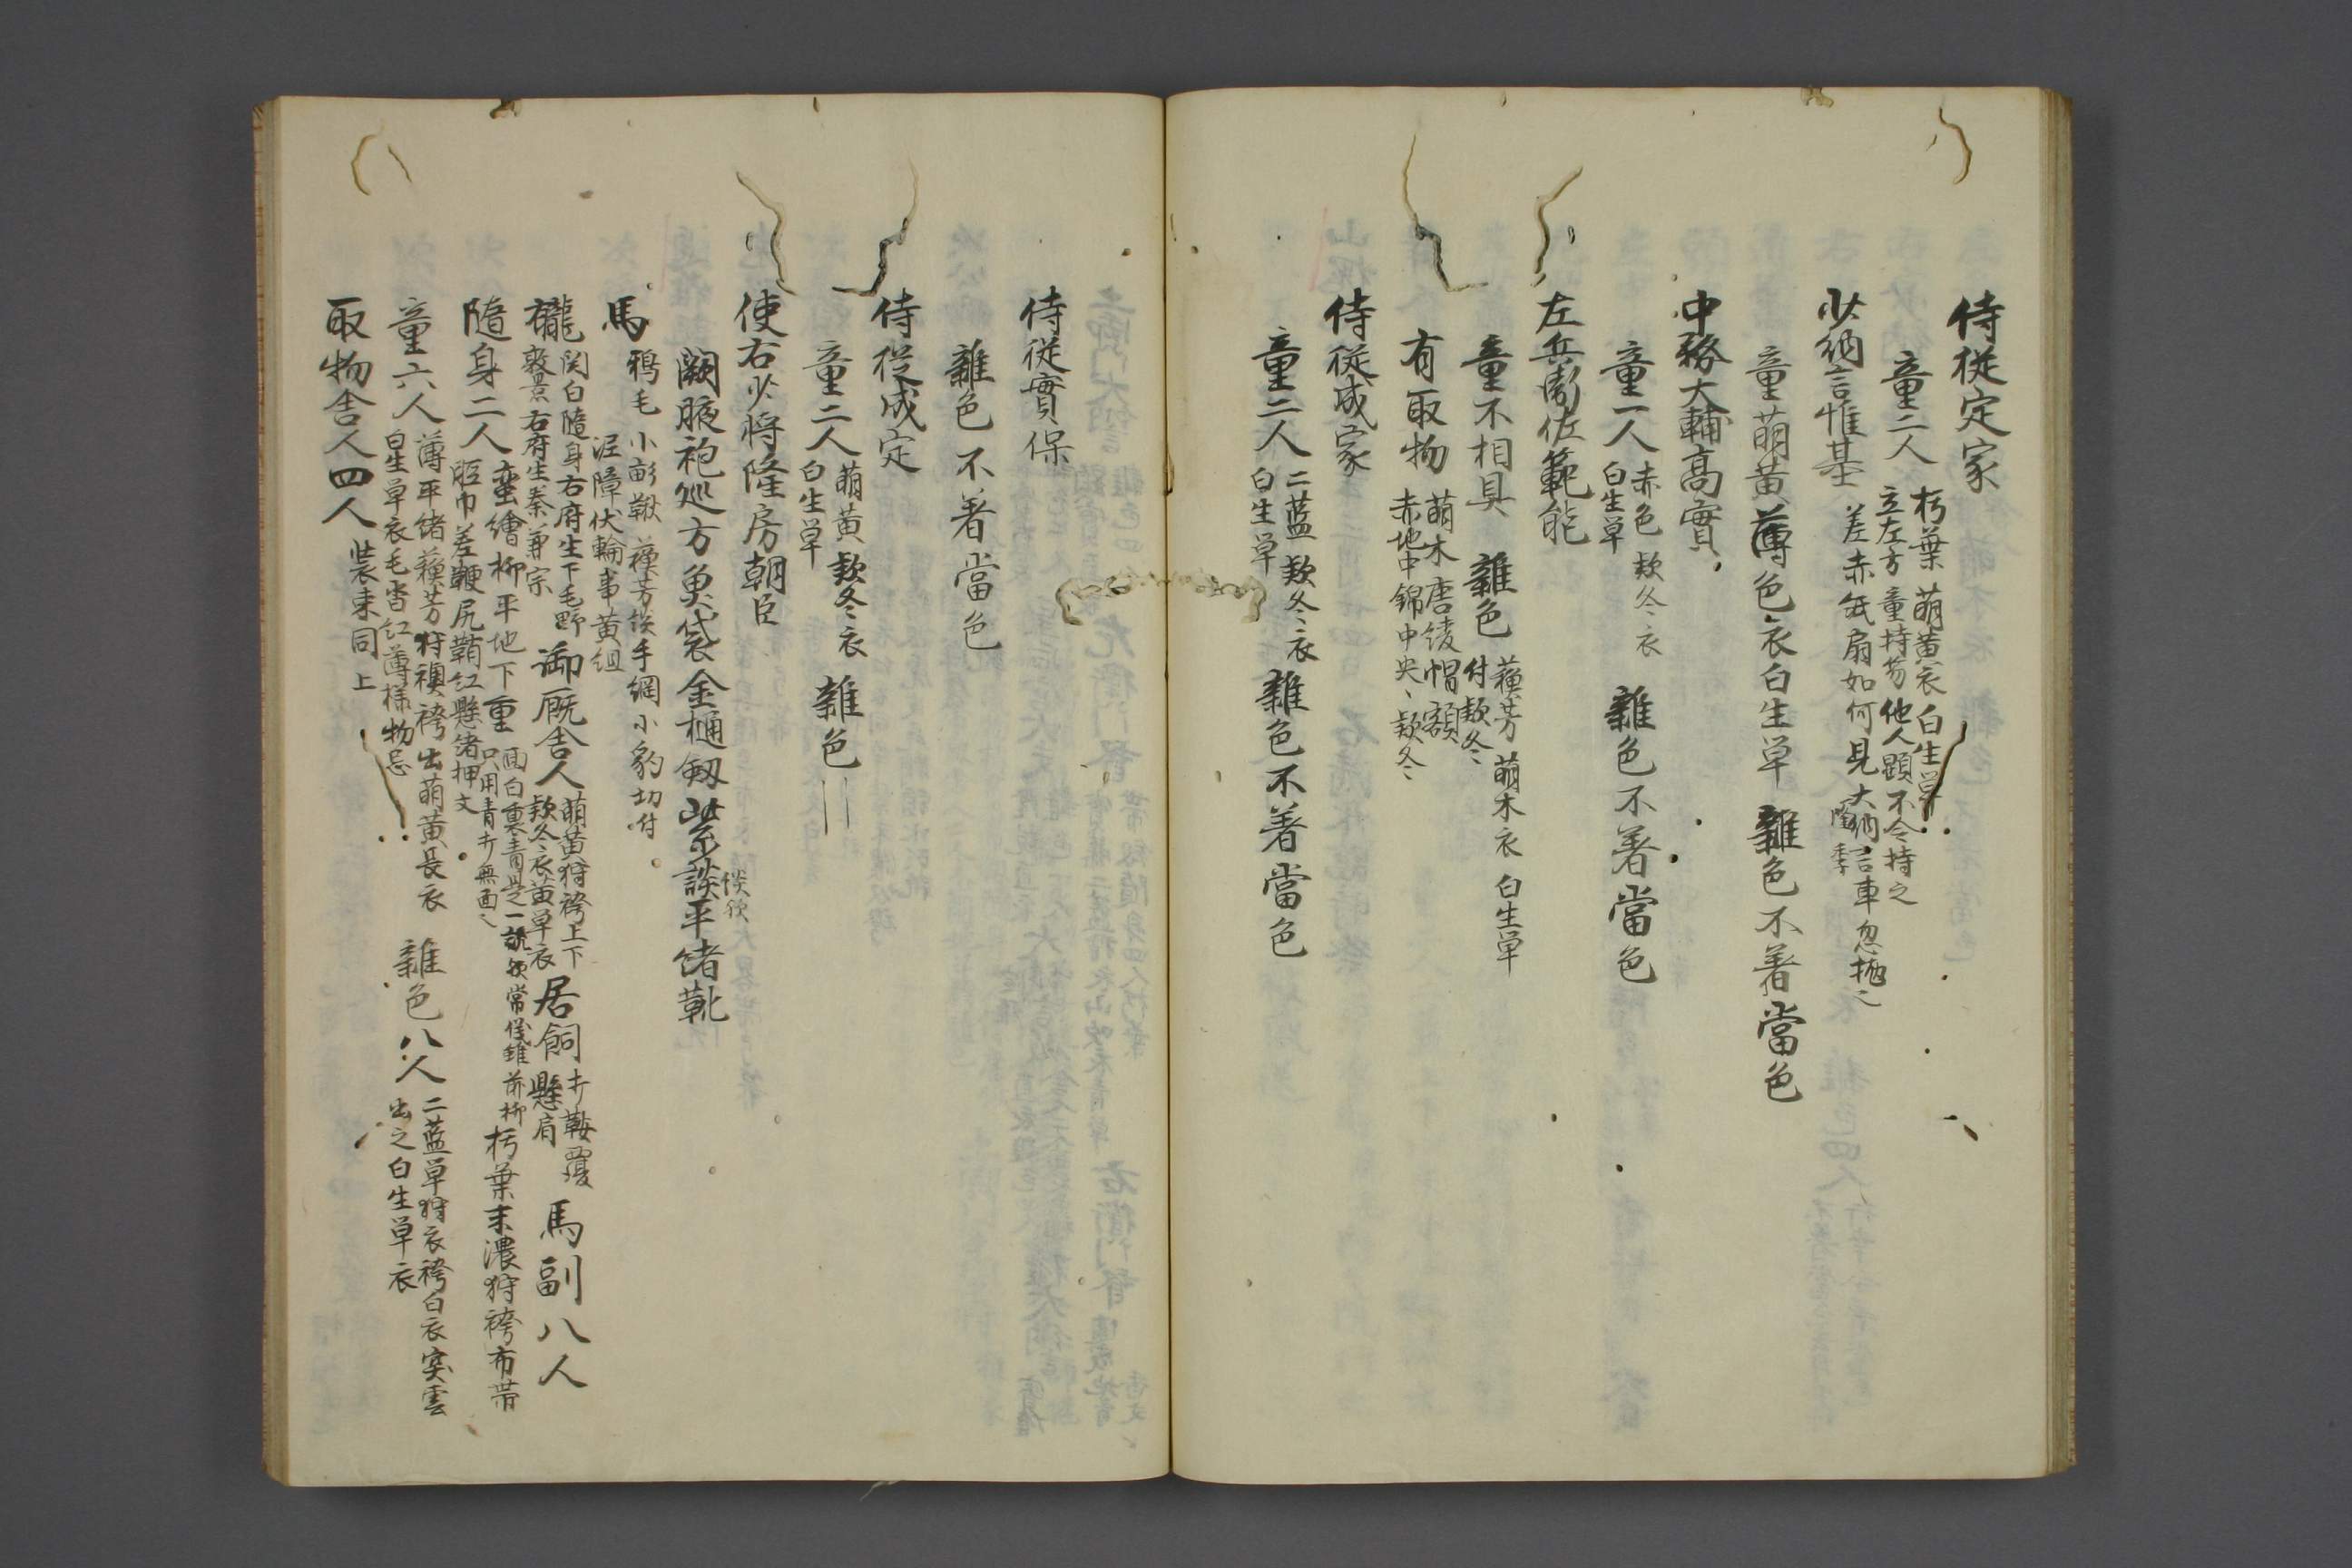 侍従定家
童二人 朽葉 萌黄衣 白生単
立左方 童持笏 他人顕不令持之
差赤紙扇如何見 大納言車 忽抛之
隆季
少納言惟基
童萌黄薄色衣白生単 雜色不着當色
中務大輔高實
童一人 赤色 款冬衣
白生単 雜色不着當色
左兵衛佐範能
童不相具 雜色 蘓芳 萌木衣 白生単
付款冬
有取物 萌木唐綾帽額
赤地中錦中央、款冬
侍従成家
童二人 二藍 款冬衣
白生単 雜色不着當色
侍従實保
雜色不着當色
侍従成定
童二人 萌黄 款冬衣
白生単 雜色
使右少将隆房朝臣
闕腋袍巡方魚袋金樋釼紫談平緒靴
馬 鵶毛 小 鞦 蘓芳 手綱小豹切付
泥障伏輪事 黄組
櫳 関白随身右府生下毛野
敦景右府生秦兼宗 御厩舎人 萌黄狩袴上下
款冬衣黄単衣 居飼 鞍覆
懸肩 馬副八人
随身二人 蛮繪柳平地下重 面白裏青是一説 常儀雖
只用青 無面 朽葉末濃狩袴布帯
脛巾差鞭尻鞘紅懸緒押文
童六人 薄平緒蘓芳狩襖袴出萌黄長衣
白生単衣毛沓紅薄様物忌 雜色八人 二藍単狩衣袴白衣
出之白生単衣
取物舎人四人 装束同上